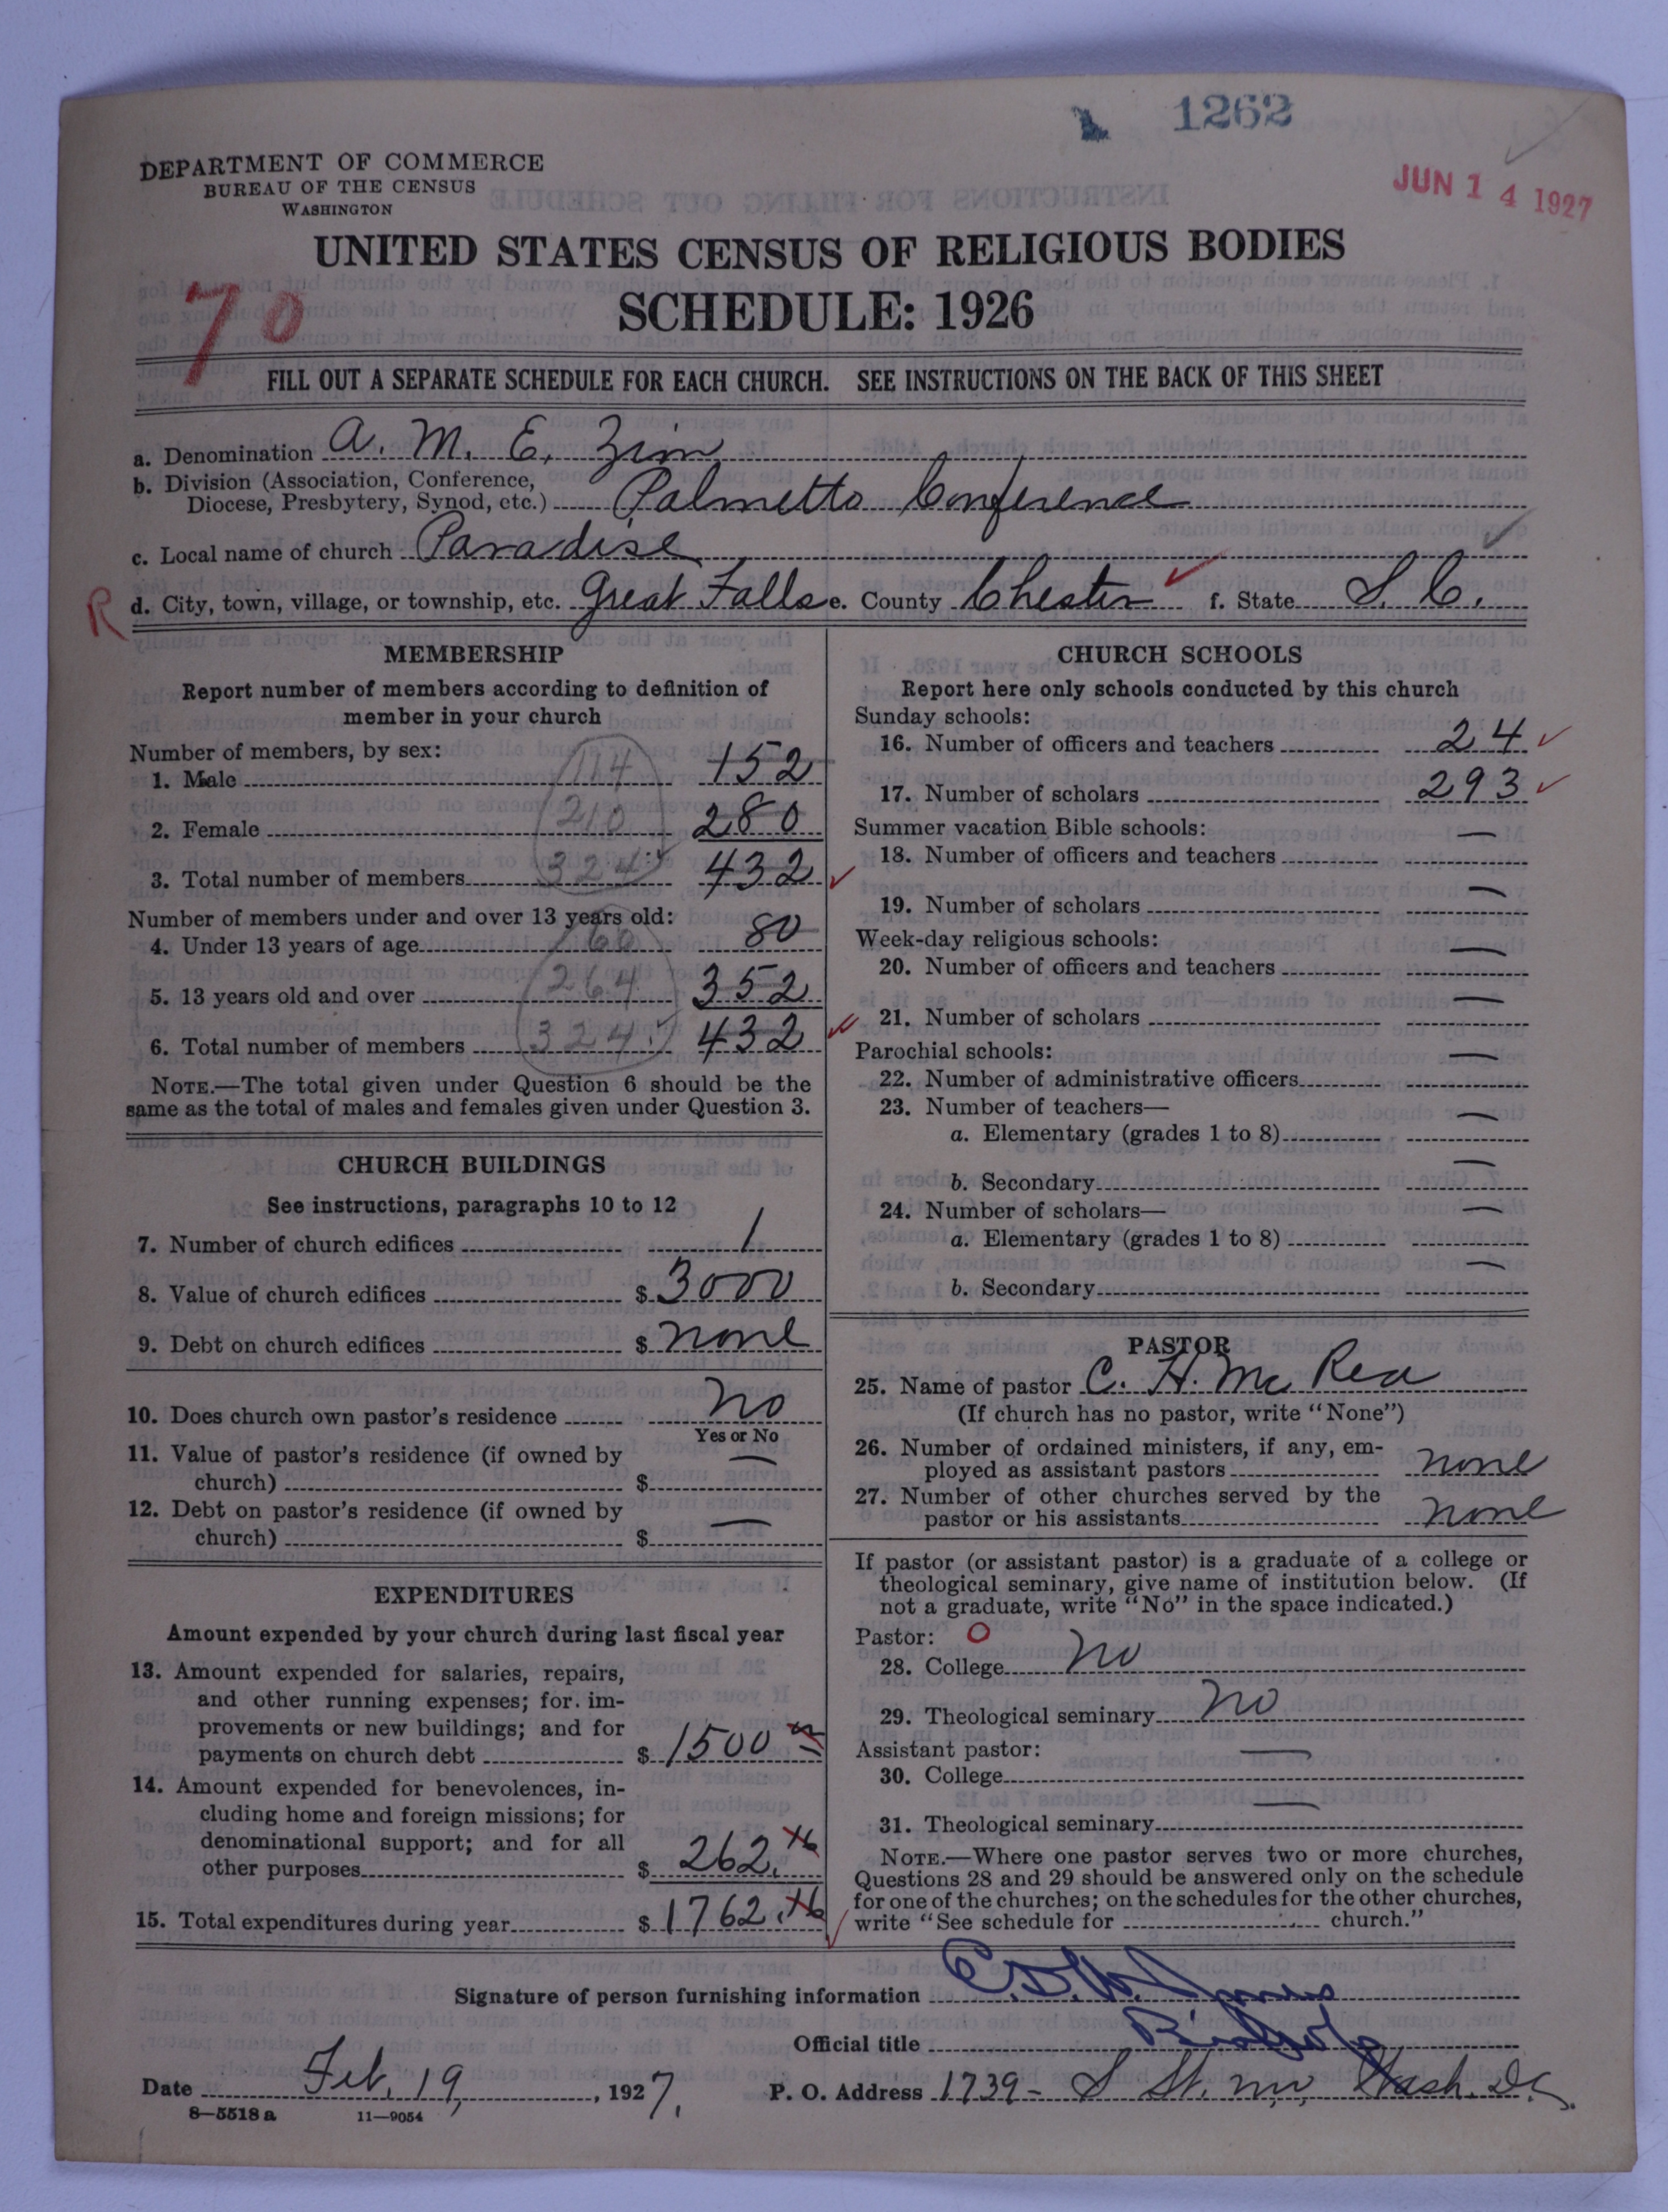 1262
JUN 14 1927
DEPARTMENT OF COMMERCE
BUREAU OF THE CENSUS
WASHINGTON
UNITED STATES CENSUS OF RELIGIOUS BODIES
SCHEDULE: 1926
70
FILL OUT A SEPARATE SCHEDULE FOR EACH CHURCH. SEE INSTRUCTIONS ON THE BACK OF THIS SHEET
a. Denomination A. M. E. Zion
b. Division (Association, Conference,
Diocese, Presbytery, Synod, etc.) Palmetto Conference
c. Local name of church Paradise
R d. City, town, village, or township, etc. Great Falls e. County Chester f. State S. C.
MEMBERSHIP
Report number of members according to definition of
member in your church
Number of members, by sex:
1. Male 114 152
2. Female 210 280
3. Total number of members 324 432
Number of members under and over 13 years old:
4. Under 13 years of age 60 80
5. 13 years old and over 264 352
6. Total number of members 324 432
NOTE.—The total given under Question 6 should be the
same as the total of males and females given under Question 3.
CHURCH BUILDINGS
See instructions, paragraphs 10 to 12
7. Number of church edifices 1
8. Value of church edifices $ 3000
9. Debt on church edifices $ none
10. Does church own pastor's residence No
Yes or No
11. Value of pastor's residence (if owned by
church) $ —
12. Debt on pastor's residence (if owned by
church) $ —
EXPENDITURES
Amount expended by your church during last fiscal year
13. Amount expended for salaries, repairs,
and other running expenses; for im-
provements or new buildings; and for
payments on church debt $ 1500
14. Amount expended for benevolences, in-
cluding home and foreign missions; for
denominational support; and for all
other purposes $ 262.
15. Total expenditures during year $ 1762.
CHURCH SCHOOLS
Report here only schools conducted by this church
Sunday schools:
16. Number of officers and teachers 24
17. Number of scholars 293
Summer vacation Bible schools:
18. Number of officers and teachers —
19. Number of scholars —
Week-day religious schools:
20. Number of officers and teachers —
21. Number of scholars —
Parochial schools:
22. Number of administrative officers —
23. Number of teachers—
a. Elementary (grades 1 to 8) —
b. Secondary —
24. Number of scholars—
a. Elementary (grades 1 to 8) —
b. Secondary —
PASTOR
25. Name of pastor C. H. Mc Rea
(If church has no pastor, write "None")
26. Number of ordained ministers, if any, em-
ployed as assistant pastors none
27. Number of other churches served by the
pastor or his assistants none
If pastor (or assistant pastor) is a graduate of a college or
theological seminary, give name of institution below. (If
not a graduate, write "No" in the space indicated.)
Pastor: O
28. College no
29. Theological seminary no
Assistant pastor:
30. College —
31. Theological seminary —
NOTE.—Where one pastor serves two or more churches,
Questions 28 and 29 should be answered only on the schedule
for one of the churches; on the schedules for the other churches,
write "See schedule for church."
Signature of person furnishing information E. D. W. Jones
Official title Bishop
Date Feb. 19, 1927. P. O. Address 1739- S St. nw, Wash. D.C.
8—5518 a 11—9054